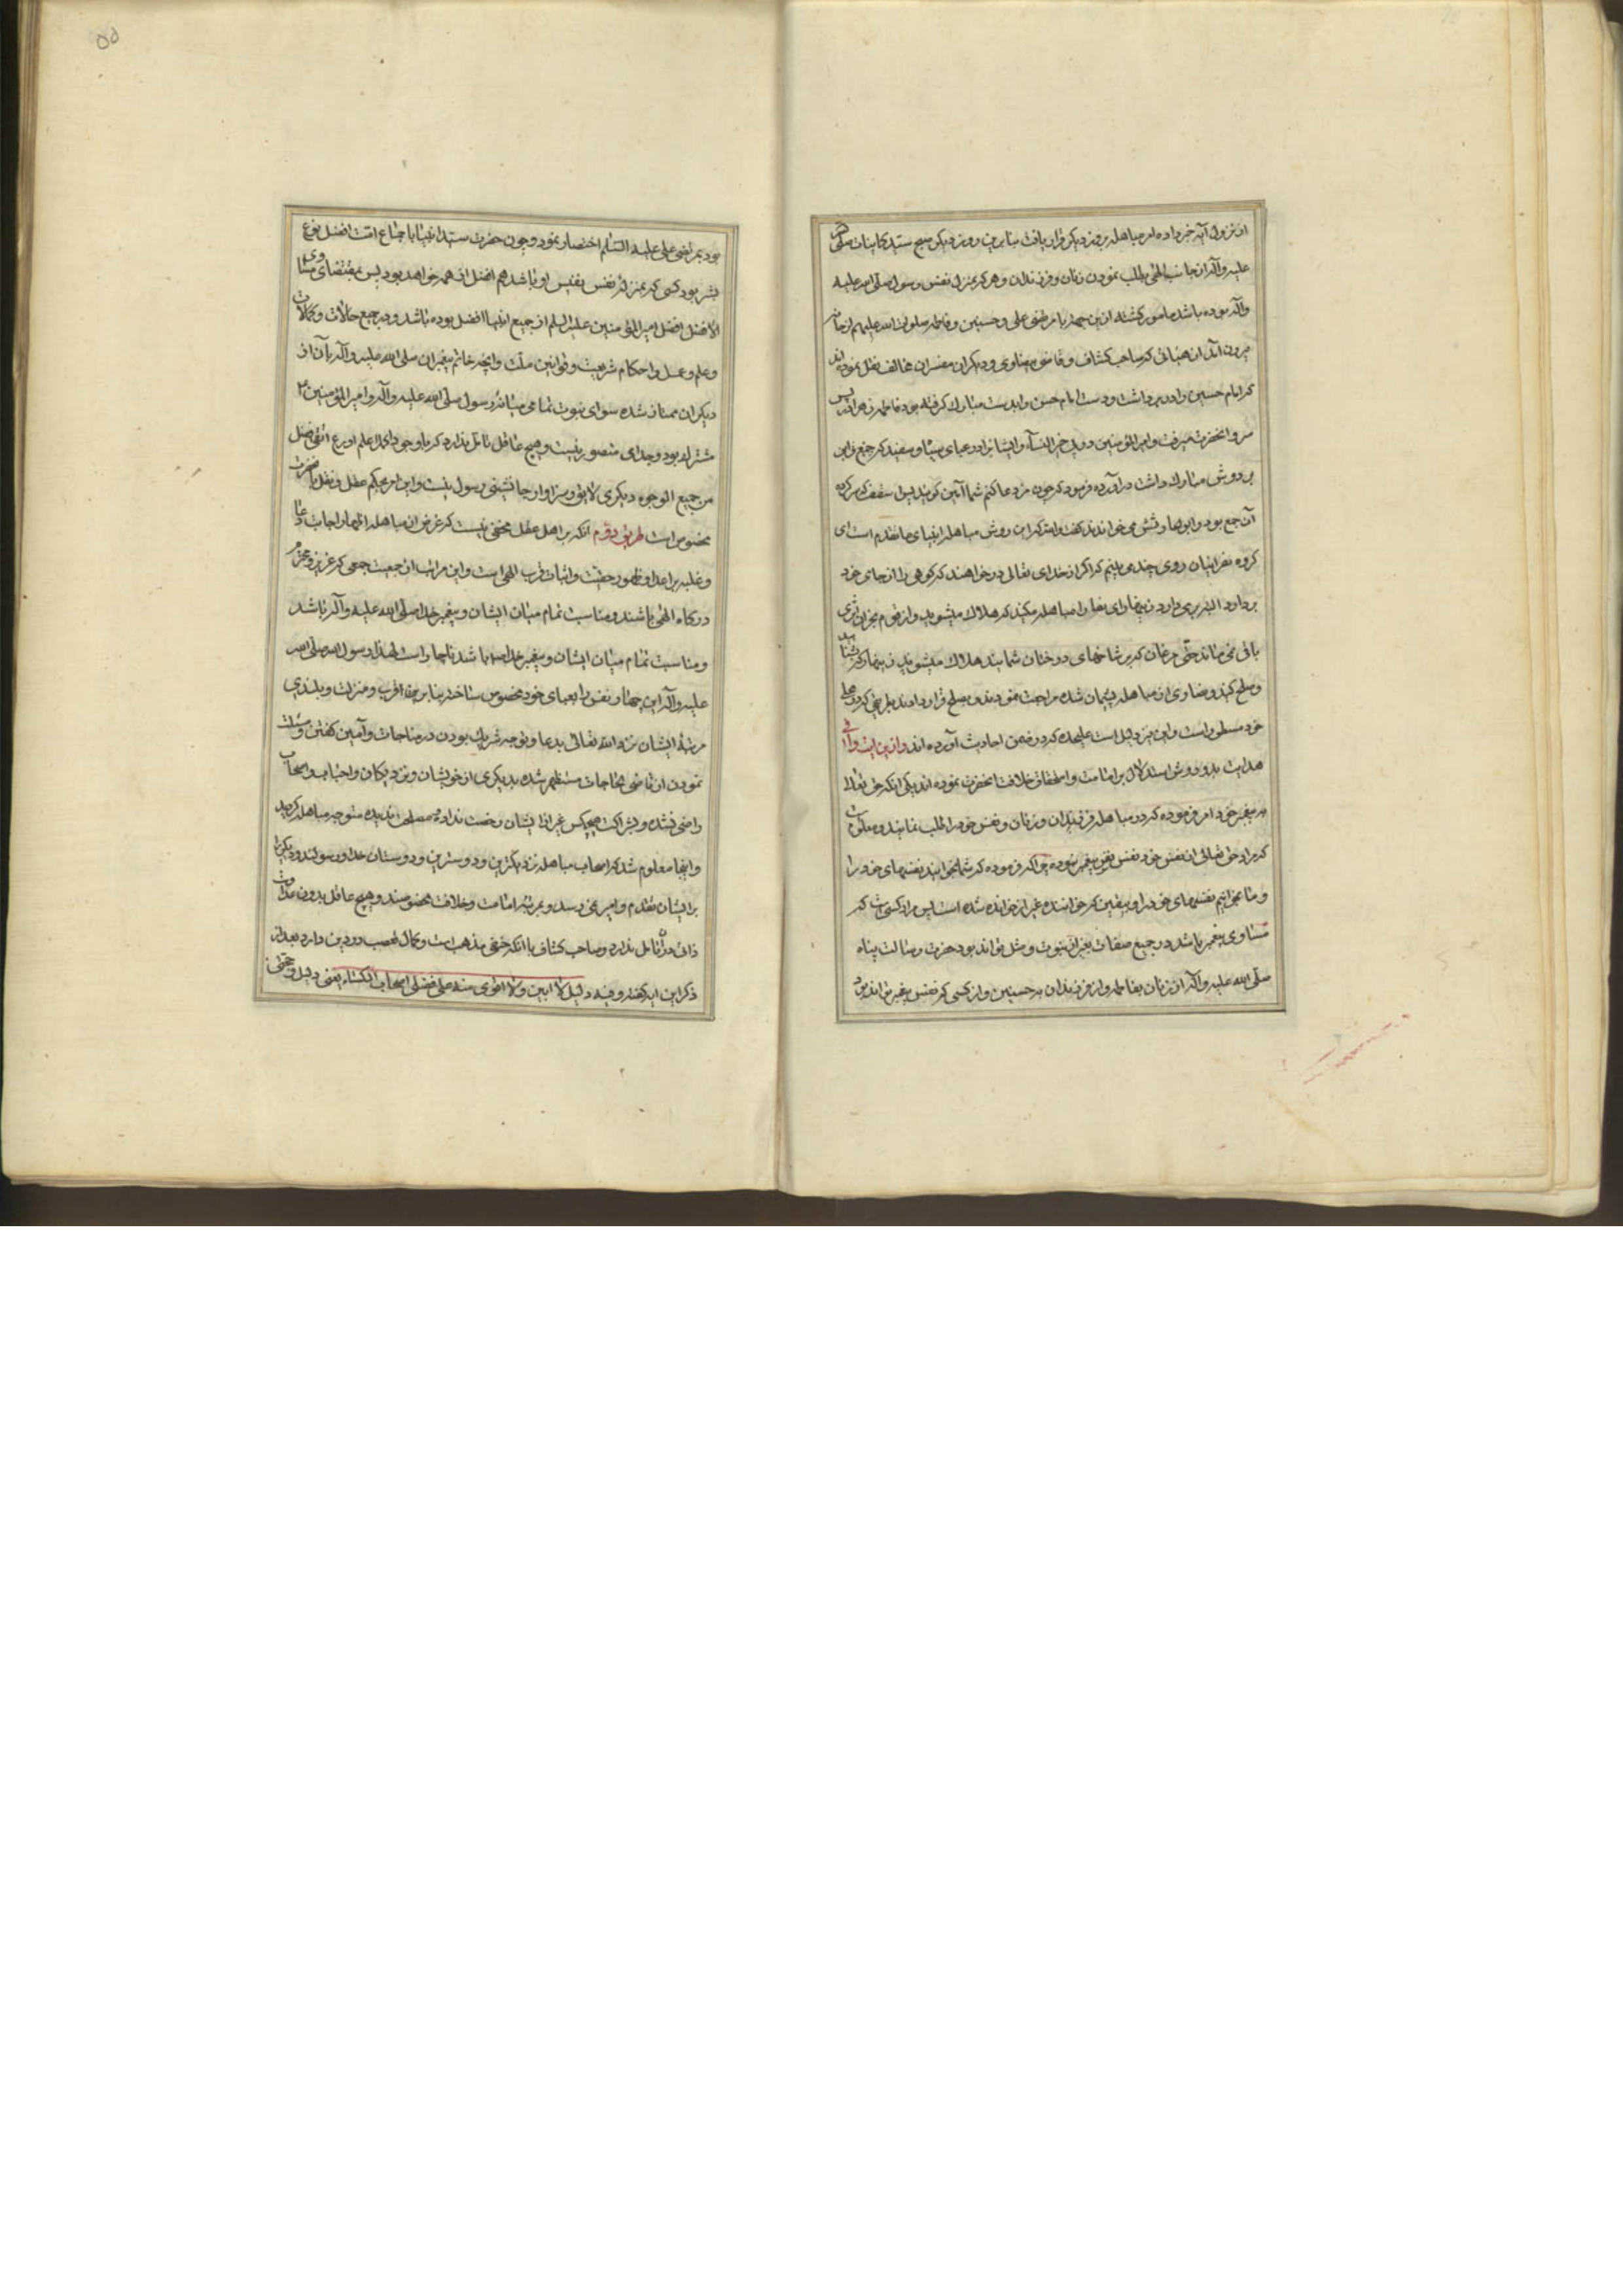 از نزول آیه خبر داده امر مباهله بروز دیگر قرار یافت بنابرین روز دیگر صبح سید کاینات صلی الله
علیه وآله از جانب الهی بطلب نمودن زنان و فرزندان و هر که بمنزله نفس رسول صلی الله علیه
وآله بوده باشد مامور گشته ازین جهة با مرتضی علی و حسنین و فاطمه صلوات الله علیهم از خانه
بیرون آمد ان چنانی که صاحب کشاف و قاضی بیضاوی و دیگران مفسران مخالف نقل نموده اند
که امام حسین را در برداشت و دست امام حسن را بدست مبارک گرفته بود فاطمه زهرا در پس
سر آنحضرت میرفت و امیر المؤمنین در پی خیر النساء و ایشانرا در عبای سیاه و سفید که
بر دوش مبارک داشت در آورده فرمود که چون من دعا کنم شما آمین گویید پس اسقف که سرکرده
آن جمع بود و ابوالحارثش می خواندند گفت والله که این روش مباهله انبیای ما تقدم است ای
گروه نصرانیان روی چندی بینم که اگر از خدای تعالی درخواهند که کوهی را از جای خود
بردارد البته بر می دارد زینهار ای نصارا مباهله مکنید که هلاک میشوید و از قوم نجران اثری
باقی نمی ماند حتی مرغان که بر شاخهای درختان شمایند هلاک میشوند زینهار که
و صلح کنید و نصاری از مباهله پشیمان شده مراجعت نمودند و بصلح قرار دادند بطریقی که در محل
خود مسطور است و این نیز دلیل است علیحده که در ضمن احادیث آورده اند و ازین ایت وافی
هدایت بدو روش استدلال بر امامت و استحقاق خلافت آنحضرت نموده اند یکی آنکه حق تعالی
به پیغمبر خود امر فرموده که در مباهله فرزندان و زنان و نفس خود را طلب نمایند و معلوم است
که مراد حق تعالی از نفس خود نفس نفیس پیغمبر نبوده چرا که فرموده که شما بخوانید نفسهای خود را
و ما بخوانیم نفسهای خود را و بیقین که خواننده غیر از خوانده شده است پس مراد کسی است که
مساوی پیغمبر باشد در جمیع صفات بغیر از نبوت و مثل تواند بود حضرت رسالت پناه
صلی الله علیه وآله از زنان بفاطمه و از فرزندان به حسنین و از کسی که نفس پیغمبر تواند بود
بود بمرتضی علی علیه السلم اختصار نمود و چون حضرت سید انبیا باجماع امت افضل نوع
بشر بود کسی که بمنزله نفس نفیس او باشد هم افضل از همه خواهد بود پس بمقتضای مساوی
الافضل افضل امیر المؤمنین علیه السلم از جمیع انبیا افضل بوده باشد و در جمیع حالات و کمالات
و علم و عمل و احکام شریعت و قوانین ملت و آنچه خاتم پیغمبران صلی الله علیه وآله بآن از
دیگران ممتاز شده سوای نبوت تمامی میانه رسول صلی الله علیه وآله و امیر المؤمنین ع
مشترک بود و جدایی متصور نیست و هیچ عاقل تامل ندارد که با وجود این اعلم اورع اتقی افضل
من جمیع الوجوه دیگری لایق و سزاوار جانشینی رسول نیست و این امر بحکم عقل و نقل بآنحضرت
مخصوص است طریق دوم آنکه بر اهل عقل مخفی نیست که غرض از مباهله اظهار اجابت دعا
و غلبه بر اعدا و ظهور حقیت و اثبات قرب الهی است و این مراتب از جمعیت جمعی که عزیز و محترم
درگاه الهی باشند و مناسبت تمام میان ایشان و پیغمبر خدا صلی الله علیه وآله باشد
و مناسبت تمام میان ایشان و پیغمبر خدا باشد ناچار است لهذا رسول الله صلی الله
علیه وآله این چهار نفس را بعبای خود مخصوص ساخته بنابر مزید قرب و منزلت و بلندی
مرتبه ایشان نزد الله تعالی بدعا و توجه شریک بودن در مناجات و آمین گفتن و مسئلت
نمودن از قاضی الحاجات مستظهر شده بدیگری از خویشان و نزدیکان و احباب و اصحاب
راضی نشده و بشراکت هیچکس غیر از ایشان رخصت نداده مصلحت ندیده متوجه مباهله گردید
و اینجا معلوم شد که اصحاب مباهله نزدیکترین و دوسترین و دوستان خدا و رسولند و دیگریرا
بر ایشان تقدم و امیری نمی رسد و بمرتبه امامت و خلافت مخصوصند و هیچ عاقل بدون عداوت
ذاتی درآن تامل ندارد و صاحب کشاف با آنکه حنفی مذهب است و کمال تعصب در دین دارد بعد از
ذکر این ایه گفته و فیه دلیل لا ابین ولا اقوی منه علی فضل اصحاب الکساء یعنی دلیل و حجتی
۵۵